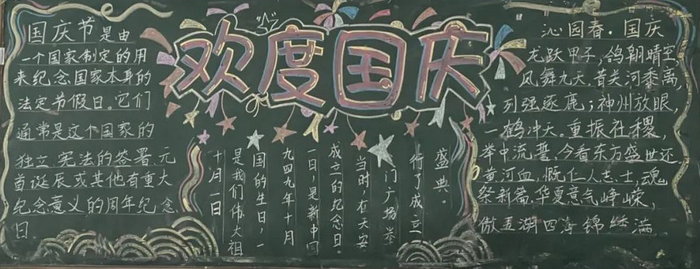 欢度国庆
国庆节是由
一个国家制定的用
来纪念国家本身的
法定节假日。它们
通常是这个国家的
独立、宪法的签署、元
首诞辰或其他有重大
纪念意义的周年纪念
日
十月一日
是我们伟大祖
国的生日，一
九四九年十月
一日，是新中国
成立的纪念日。
当时在天安
门广场举
行了成立
盛典。
沁园春·国庆
龙跃甲子，鸽翱晴空，
凤舞九天。昔关河黍离，
列强逐鹿；神州放眼，
一鹤冲天。重振社稷，
举中流誓，今看东方盛世还
黄河血，慨仁人志士，魂
祭新篇。华夏意气峥嵘，
傲五湖四海锦绣满